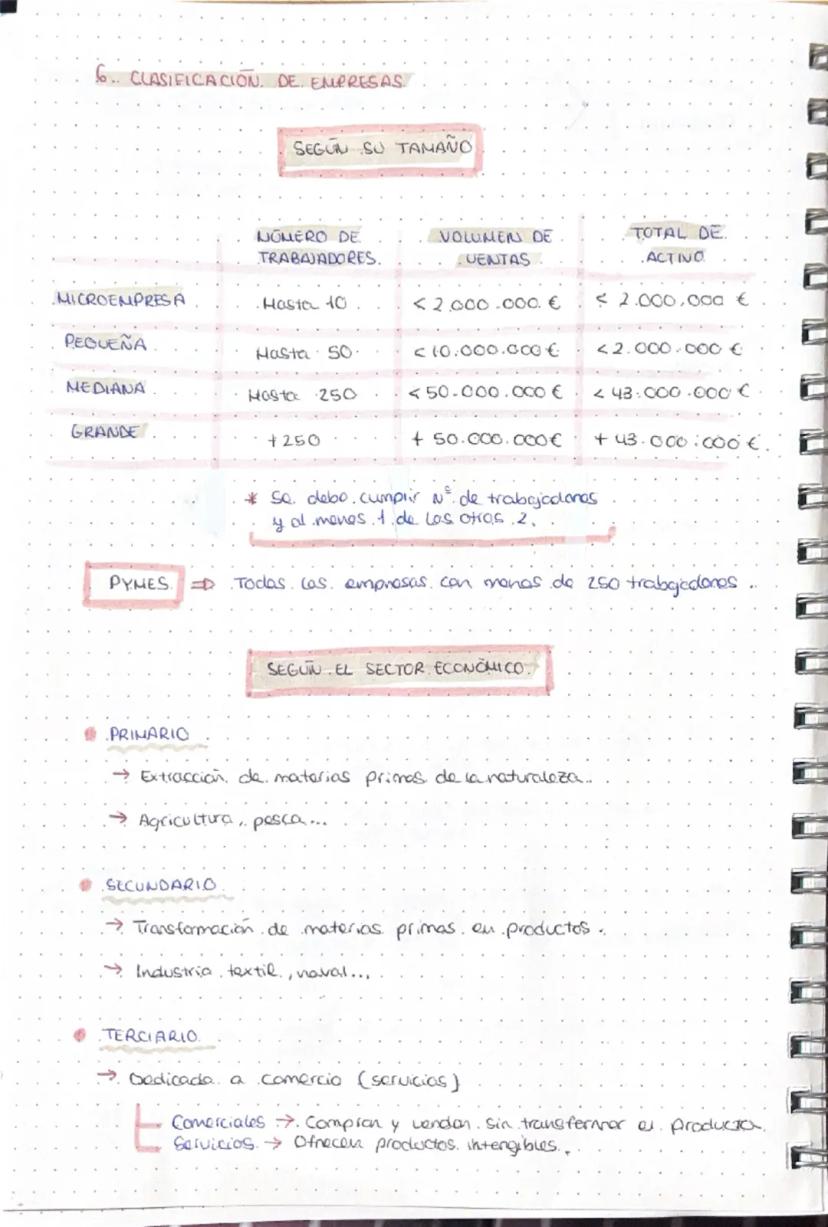 6. CLASIFICACIÓN DE EMPRESAS
SEGÚN SU TAMAÑO
NÚMERO DE TRABAJADORES. VOLUMEN DE VENTAS TOTAL DE ACTIVO
MICROEMPRESA Hasta 10 < 2.000.000 € < 2.000.000 €
PEQUEÑA Hasta 50 < 10.000.000 € < 2.000.000 €
MEDIANA Hasta 250 < 50.000.000 € < 43.000.000 €
GRANDE +250 + 50.000.000 € + 43.000.000 €
* Se debe cumplir Nº de trabajadores
y al menos 1 de las otras 2.
PYMES ⇒ Todas las empresas con menos de 250 trabajadores.
SEGÚN EL SECTOR ECONÓMICO
• PRIMARIO
→ Extracción de materias primas de la naturaleza.
→ Agricultura, pesca...
• SECUNDARIO
→ Transformación de materias primas en productos.
→ Industria textil, naval...
• TERCIARIO
→ Dedicada a comercio (servicios)
Comerciales → Compran y venden sin transfermar el producto.
Servicios → Ofrecen productos intengibles.